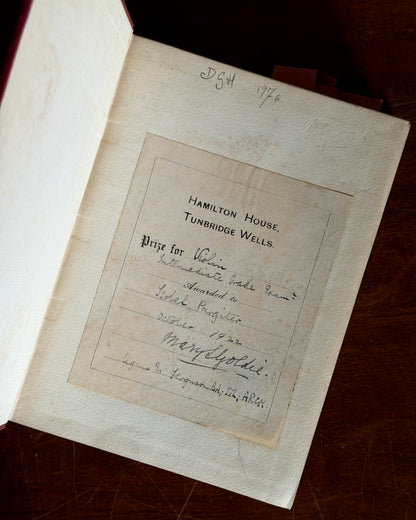 DGH 1976
HAMILTON HOUSE,
TUNBRIDGE WELLS.
Prize for Violin
Intermediate Grade Exam
Awarded to
Isobel Pargiter
October 1922
Mary S Goldie.
Agnes M. Ferguson